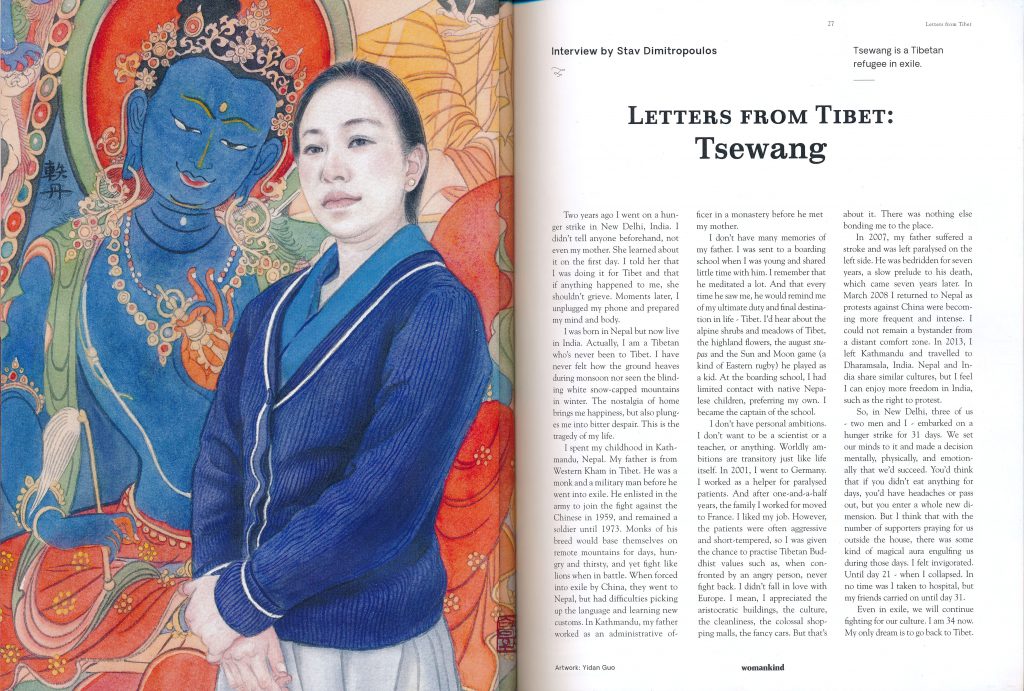 軼
丹
27
Letters from Tibet
Interview by Stav Dimitropoulos
Tsewang is a Tibetan
refugee in exile.
Letters from Tibet:
Tsewang
Two years ago I went on a hun-
ger strike in New Delhi, India. I
didn't tell anyone beforehand, not
even my mother. She learned about
it on the first day. I told her that
I was doing it for Tibet and that
if anything happened to me, she
shouldn't grieve. Moments later, I
unplugged my phone and prepared
my mind and body.
I was born in Nepal but now live
in India. Actually, I am a Tibetan
who's never been to Tibet. I have
never felt how the ground heaves
during monsoon nor seen the blind-
ing white snow-capped mountains
in winter. The nostalgia of home
brings me happiness, but also plung-
es me into bitter despair. This is the
tragedy of my life.
I spent my childhood in Kath-
mandu, Nepal. My father is from
Western Kham in Tibet. He was a
monk and a military man before he
went into exile. He enlisted in the
army to join the fight against the
Chinese in 1959, and remained a
soldier until 1973. Monks of his
breed would base themselves on
remote mountains for days, hun-
gry and thirsty, and yet fight like
lions when in battle. When forced
into exile by China, they went to
Nepal, but had difficulties picking
up the language and learning new
customs. In Kathmandu, my father
worked as an administrative of-
ficer in a monastery before he met
my mother.
I don't have many memories of
my father. I was sent to a boarding
school when I was young and shared
little time with him. I remember that
he meditated a lot. And that every
time he saw me, he would remind me
of my ultimate duty and final destina-
tion in life - Tibet. I'd hear about the
alpine shrubs and meadows of Tibet,
the highland flowers, the august stu-
pas and the Sun and Moon game (a
kind of Eastern rugby) he played as
a kid. At the boarding school, I had
limited contact with native Nepa-
lese children, preferring my own. I
became the captain of the school.
I don't have personal ambitions.
I don't want to be a scientist or a
teacher, or anything. Worldly am-
bitions are transitory just like life
itself. In 2001, I went to Germany.
I worked as a helper for paralysed
patients. And after one-and-a-half
years, the family I worked for moved
to France. I liked my job. However,
the patients were often aggressive
and short-tempered, so I was given
the chance to practise Tibetan Bud-
dhist values such as, when con-
fronted by an angry person, never
fight back. I didn't fall in love with
Europe. I mean, I appreciated the
aristocratic buildings, the culture,
the cleanliness, the colossal shop-
ping malls, the fancy cars. But that's
about it. There was nothing else
bonding me to the place.
In 2007, my father suffered a
stroke and was left paralysed on the
left side. He was bedridden for seven
years, a slow prelude to his death,
which came seven years later. In
March 2008 I returned to Nepal as
protests against China were becom-
ing more frequent and intense. I
could not remain a bystander from
a distant comfort zone. In 2013, I
left Kathmandu and travelled to
Dharamsala, India. Nepal and In-
dia share similar cultures, but I feel
I can enjoy more freedom in India,
such as the right to protest.
So, in New Delhi, three of us
- two men and I - embarked on a
hunger strike for 31 days. We set
our minds to it and made a decision
mentally, physically, and emotion-
ally that we'd succeed. You'd think
that if you didn't eat anything for
days, you'd have headaches or pass
out, but you enter a whole new di-
mension. But I think that with the
number of supporters praying for us
outside the house, there was some
kind of magical aura engulfing us
during those days. I felt invigorated.
Until day 21 - when I collapsed. In
no time was I taken to hospital, but
my friends carried on until day 31.
Even in exile, we will continue
fighting for our culture. I am 34 now.
My only dream is to go back to Tibet.
Artwork: Yidan Guo
womankind